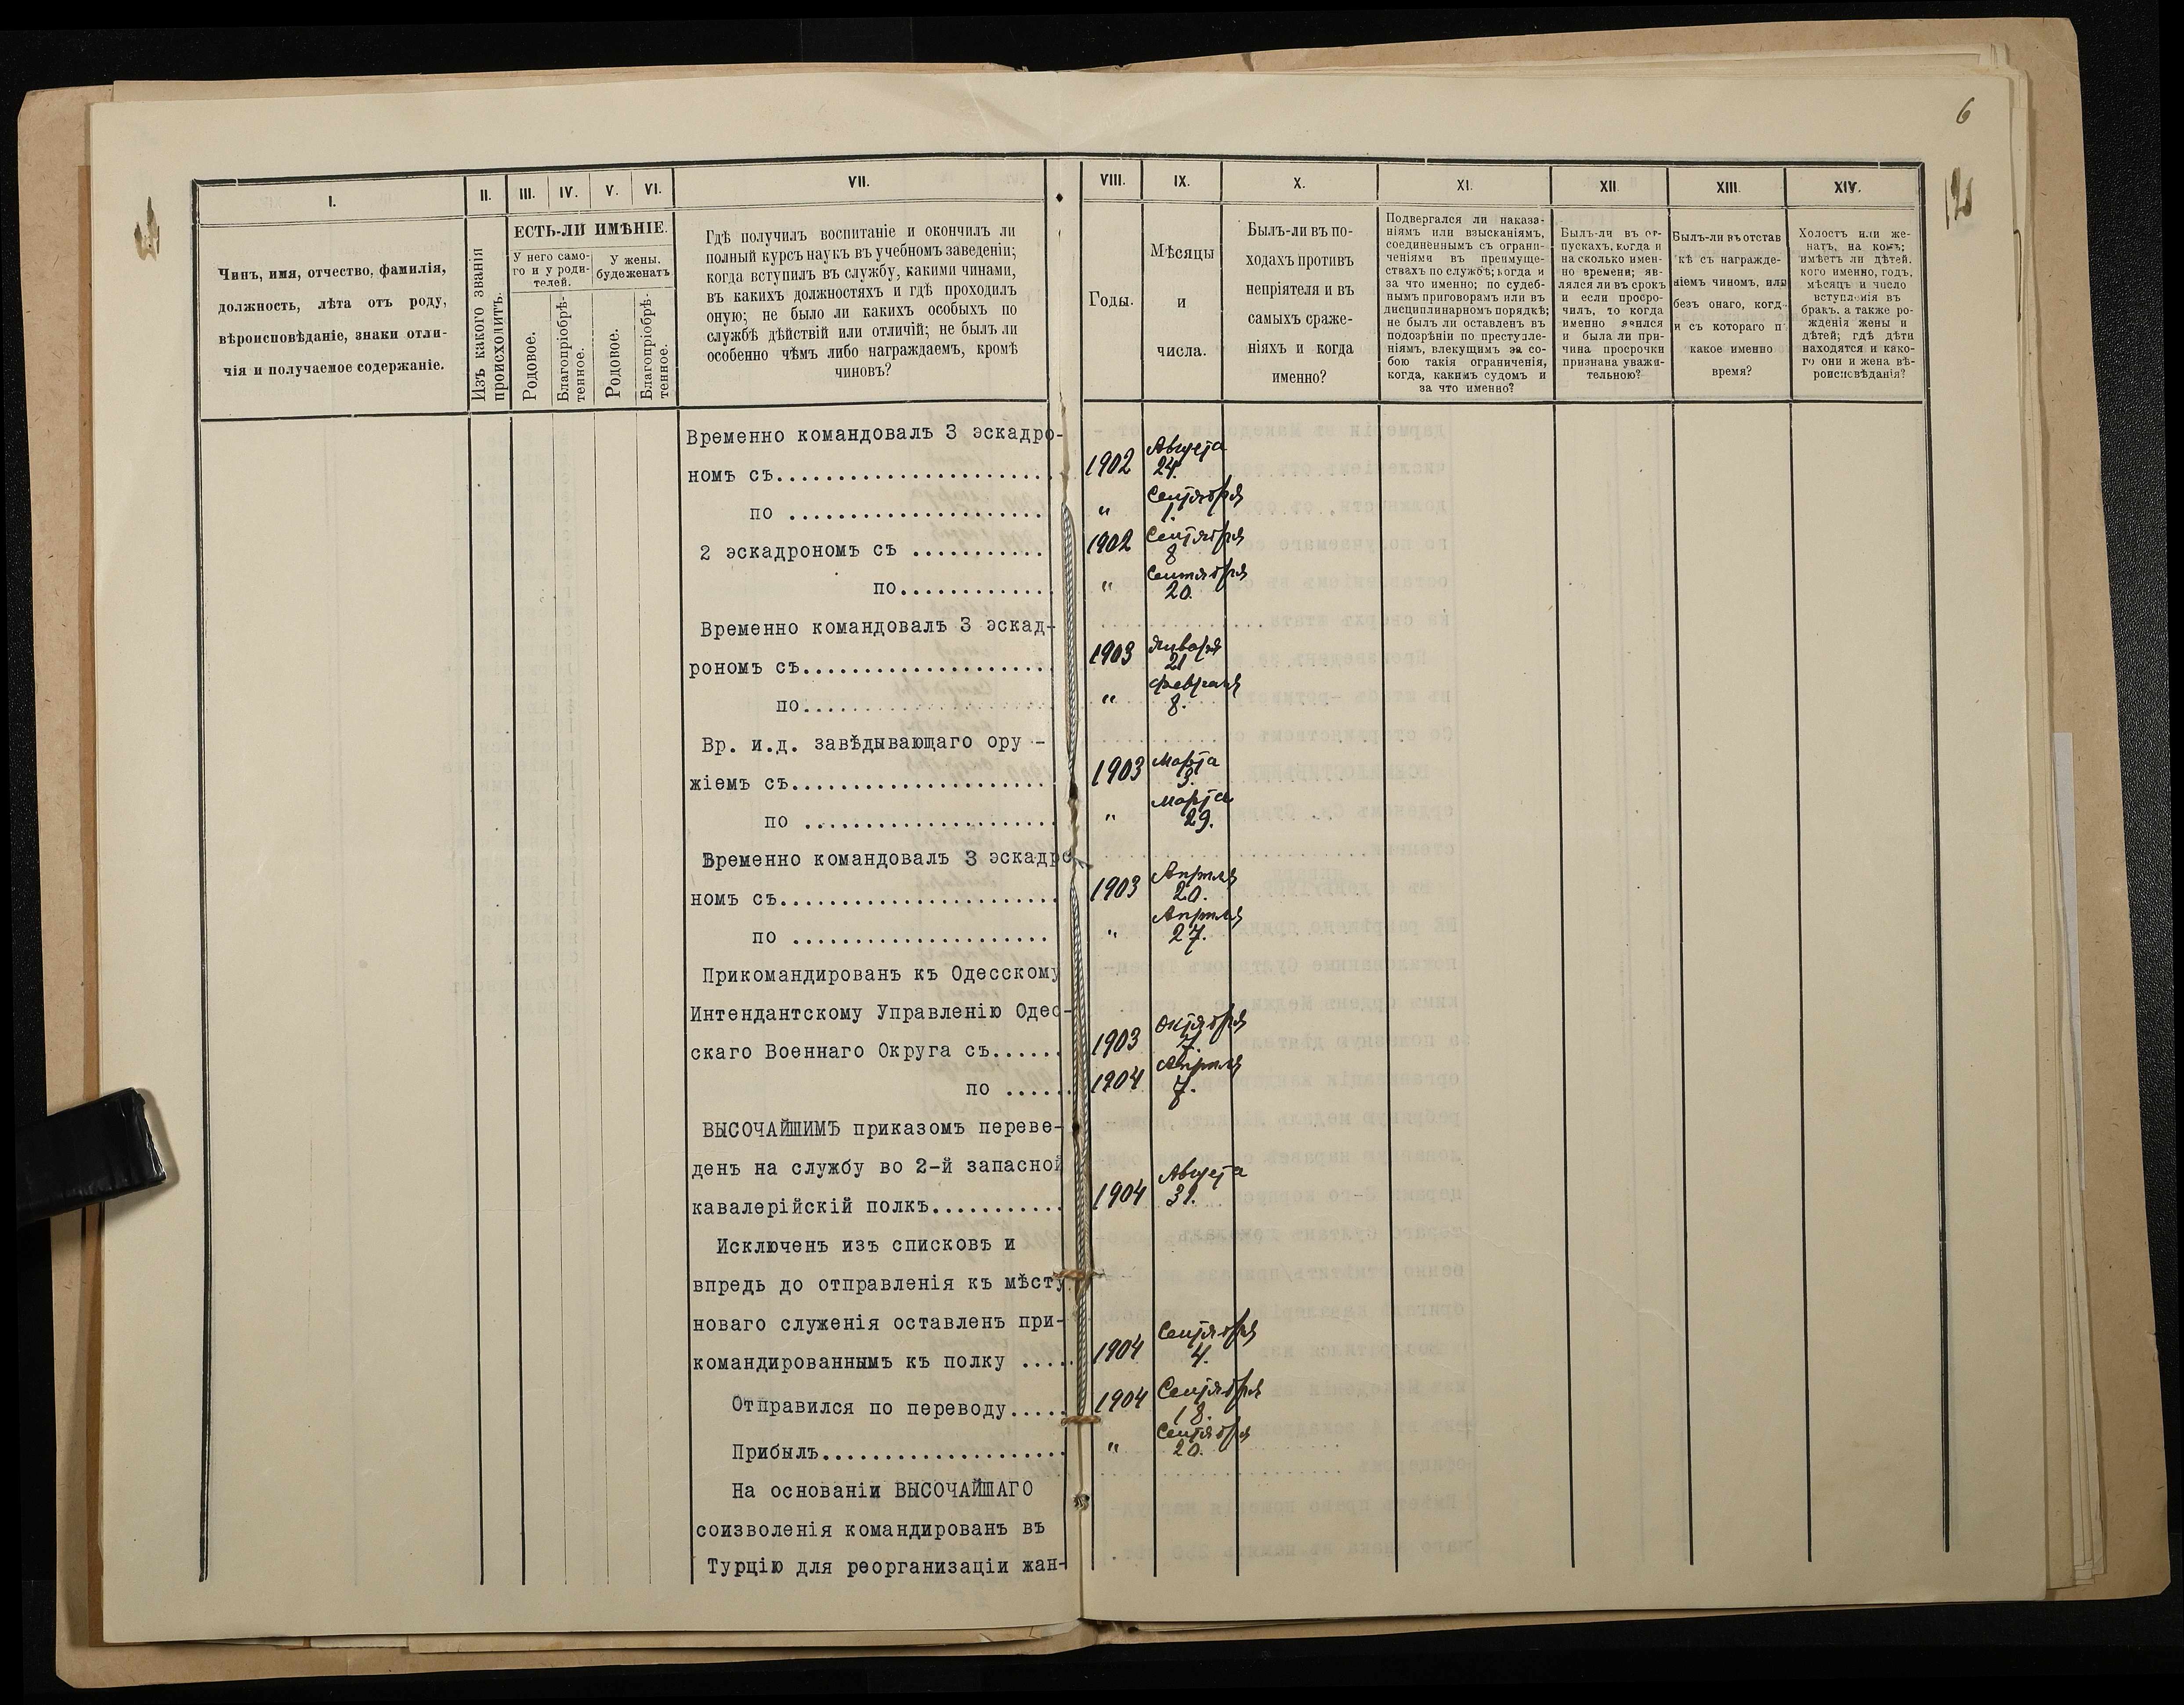 6
I.
II.
III.
IV.
V.
VI.
VII.
VIII.
IX.
X.
XI.
XII.
XIII.
XIV.
Чинъ, имя, отчество, фамилія,
должность, лѣта отъ роду,
вѣроисповѣданіе, знаки отли-
чія и получаемое содержаніе.
Изъ какого званія
происходитъ.
ЕСТЬ-ЛИ ИМѢНІЕ.
У него само-
го и у роди-
телей.
У жены,
буде женатъ
Родовое.
Благопріобрѣ-
тенное.
Родовое.
Благопріобрѣ-
тенное.
Гдѣ получилъ воспитаніе и окончилъ ли
полный курсъ наукъ въ учебномъ заведеніи;
когда вступилъ въ службу, какими чинами,
въ какихъ должностяхъ и гдѣ проходилъ
оную; не было ли какихъ особыхъ по
службѣ дѣйствій или отличій; не былъ ли
особенно чѣмъ либо награждаемъ, кромѣ
чиновъ?
Годы.
Мѣсяцы
и
числа.
Былъ-ли въ по-
ходахъ противъ
непріятеля и въ
самыхъ сраже-
ніяхъ и когда
именно?
Подвергался ли наказа-
ніямъ или взысканіямъ,
соединеннымъ съ ограни-
ченіями въ преимуще-
ствахъ по службѣ; когда и
за что именно; по судеб-
нымъ приговорамъ или въ
дисциплинарномъ порядкѣ;
не былъ ли оставленъ въ
подозрѣніи по преступле-
ніямъ, влекущимъ за со-
бою такія ограниченія,
когда, какимъ судомъ и
за что именно?
Былъ-ли въ от-
пускахъ, когда и
на сколько имен-
но времени; яв-
лялся ли въ срокъ
и если просро-
чилъ, то когда
именно явился
и была ли при-
чина просрочки
признана уважи-
тельною?
Былъ-ли въ отстав
кѣ съ награжде-
ніемъ чиномъ, или
безъ онаго, когд
и съ котораго п
какое именно
время?
Холостъ или же-
натъ, на комъ;
имѣетъ ли дѣтей,
кого именно, годъ,
мѣсяцъ и число
вступленія въ
бракъ, а также ро-
жденія жены и
дѣтей; гдѣ дѣти
находятся и како-
го они и жена вѣ-
роисповѣданія?
Временно командовалъ 3 эскадро-
номъ съ...................... 1902 Августа 24.
по .................... " Сентября 1.
2 эскадрономъ съ ........... 1902 Сентября 8
по............ " Сентября 20.
Временно командовалъ 3 эскад-
рономъ съ.................... 1903 Января 21
по.................... " Февраля 8.
Вр. и.д. завѣдывающаго ору -
жіемъ съ.................... 1903 Марта 3.
по .................... " Марта 29.
Временно командовалъ 3 эскадро
номъ съ...................... 1903 Апрѣля 20.
по .................... " Апрѣля 27.
Прикомандированъ къ Одесскому
Интендантскому Управленію Одес-
скаго Военнаго Округа съ...... 1903 Октября 7.
по ...... 1904 Апрѣля 7.
ВЫСОЧАЙШИМЪ приказомъ переве-
денъ на службу во 2-й запасной
кавалерійскій полкъ........... 1904 Августа 31.
Исключенъ изъ списковъ и
впредь до отправленія къ мѣсту
новаго служенія оставленъ при-
командированнымъ къ полку ..... 1904 Сентября 4.
Отправился по переводу..... 1904 Сентября 18.
Прибылъ.................... " Сентября 20.
На основаніи ВЫСОЧАЙШАГО
соизволенія командированъ въ
Турцію для реорганизаціи жан-